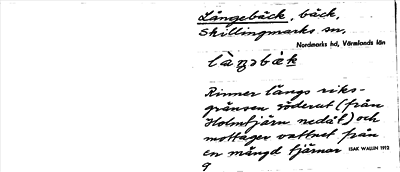 Långebäck, bäck,
Skillingmarks sn,
Nordmarks hd, Värmlands län
Rinner längs riks-
gränsen söderut (från
Holmtjärn nedåt) och
mottager vattnet från
en mängd tjärnar ISAK WALLIN 1912
9